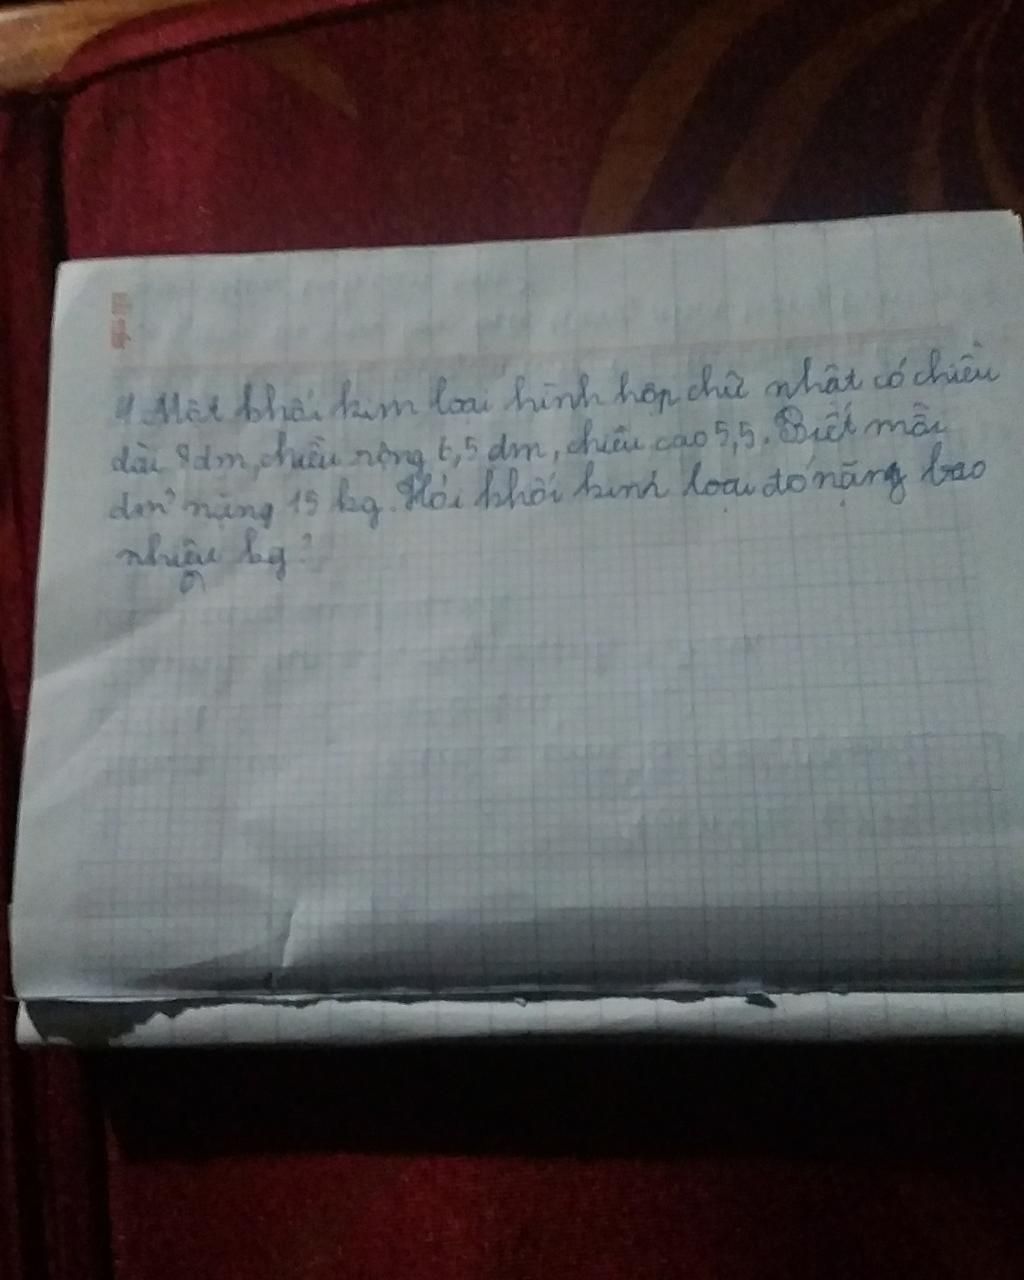 4. Một khối kim loại hình hộp chữ nhật có chiều
dài 8dm, chiều rộng 6,5 dm, chiều cao 5,5. Biết mỗi
dm³ nặng 15 kg. Hỏi khối kinh loại đó nặng bao
nhiêu kg?